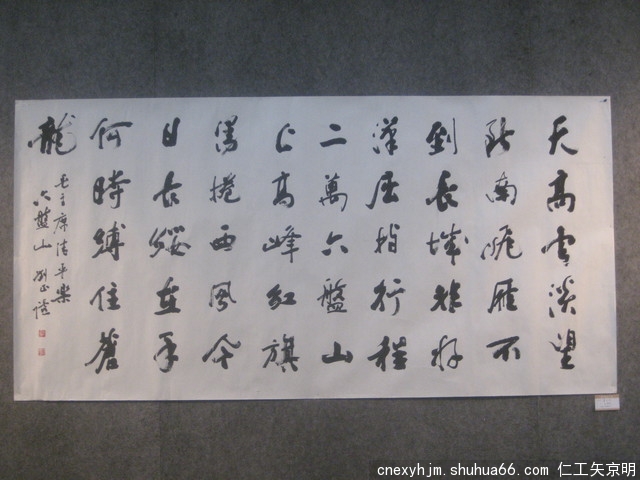 天高雲淡望
斷南飛雁不
到長城非好
漢屈指行程
二萬六盤山
上高峰紅旗
漫捲西風今
日長纓在手
何時縛住蒼
龍
毛主席清平樂
六盤山
cnexyhjm.shuhua66.com 仁工矢京明